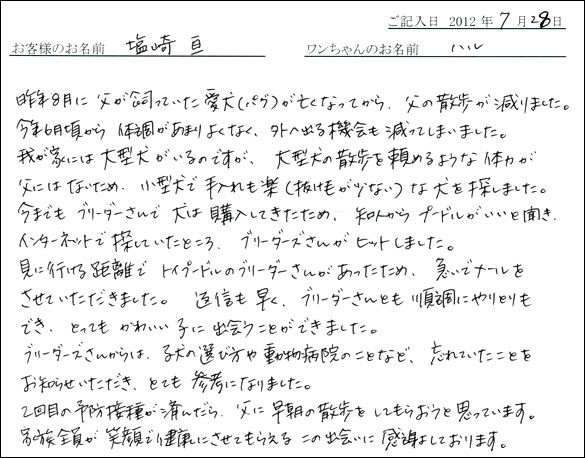 ご記入日 2012年7月28日
お客様のお名前 塩崎 亘 ワンちゃんのお名前 ハル
昨年8月に父が飼っていた愛犬(パグ)が亡くなってから、父の散歩が減りました。
今年6月頃から体調があまりよくなく、外へ出る機会も減ってしまいました。
我が家には大型犬がいるのですが、大型犬の散歩を頼めるような体力が
父にはないため、小型犬で手入れも楽(抜け毛が少ない)な犬を探しました。
今までもブリーダーさんで犬は購入してきたため、知人からプードルがいいと聞き、
インターネットで探していたところ、ブリーダーズさんがヒットしました。
見に行ける距離でトイプードルのブリーダーさんがあったため、急いでメールを
させていただきました。返信も早く、ブリーダーさんとも順調にやりとりも
でき、とってもかわいい子に出会うことができました。
ブリーダーズさんからは、子犬の選び方や動物病院のことなど、忘れていたことを
お知らせいただき、とても参考になりました。
2回目の予防接種が済んだら、父に早朝の散歩をしてもらおうと思っています。
家族全員が笑顔で健康にさせてもらえるこの出会いに感謝しております。